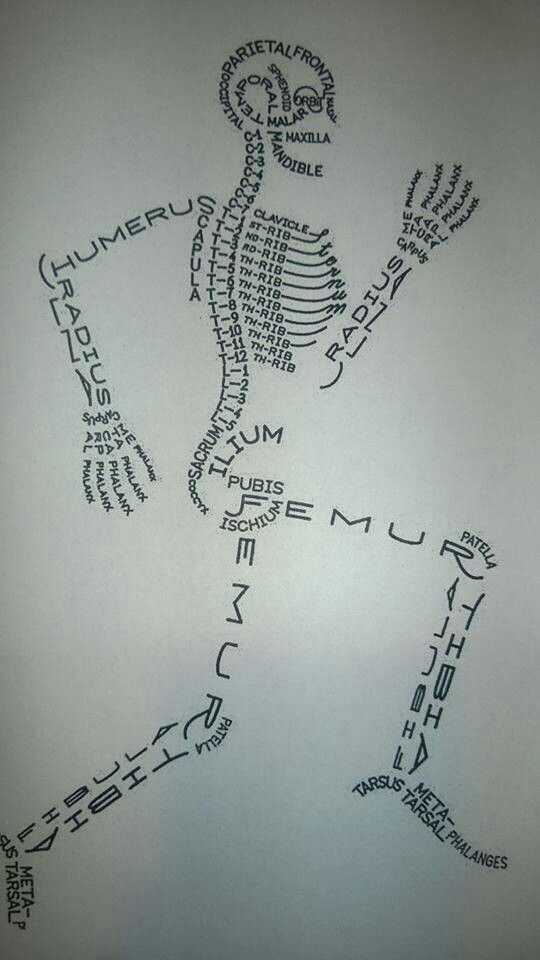 PARIETAL
FRONTAL
NASAL
OCCIPITAL
TEMPORAL
SPHENOID
ORBIT
MALAR
MAXILLA
MANDIBLE
C-1
C-2
C-3
C-4
C-5
C-6
C-7
CLAVICLE
T-1 ST-RIB
T-2 ND-RIB
T-3 RD-RIB
T-4 TH-RIB
T-5 TH-RIB
T-6 TH-RIB
T-7 TH-RIB
T-8 TH-RIB
T-9 TH-RIB
T-10 TH-RIB
T-11 TH-RIB
T-12 TH-RIB
sternum
L-1
L-2
L-3
L-4
L-5
SCAPULA
HUMERUS
RADIUS
ULNA
CARPUS
META CARPAL
PHALANX
PHALANX
PHALANX
PHALANX
PHALANX
RADIUS
ULNA
CARPUS
META CARPAL
PHALANX
PHALANX
PHALANX
PHALANX
PHALANX
SACRUM
COCCYX
ILIUM
PUBIS
ISCHIUM
FEMUR
PATELLA
TIBIA
FIBULA
TARSUS
META-
TARSAL
PHALANGES
FEMUR
PATELLA
TIBIA
FIBULA
SUS
META-
TARSAL